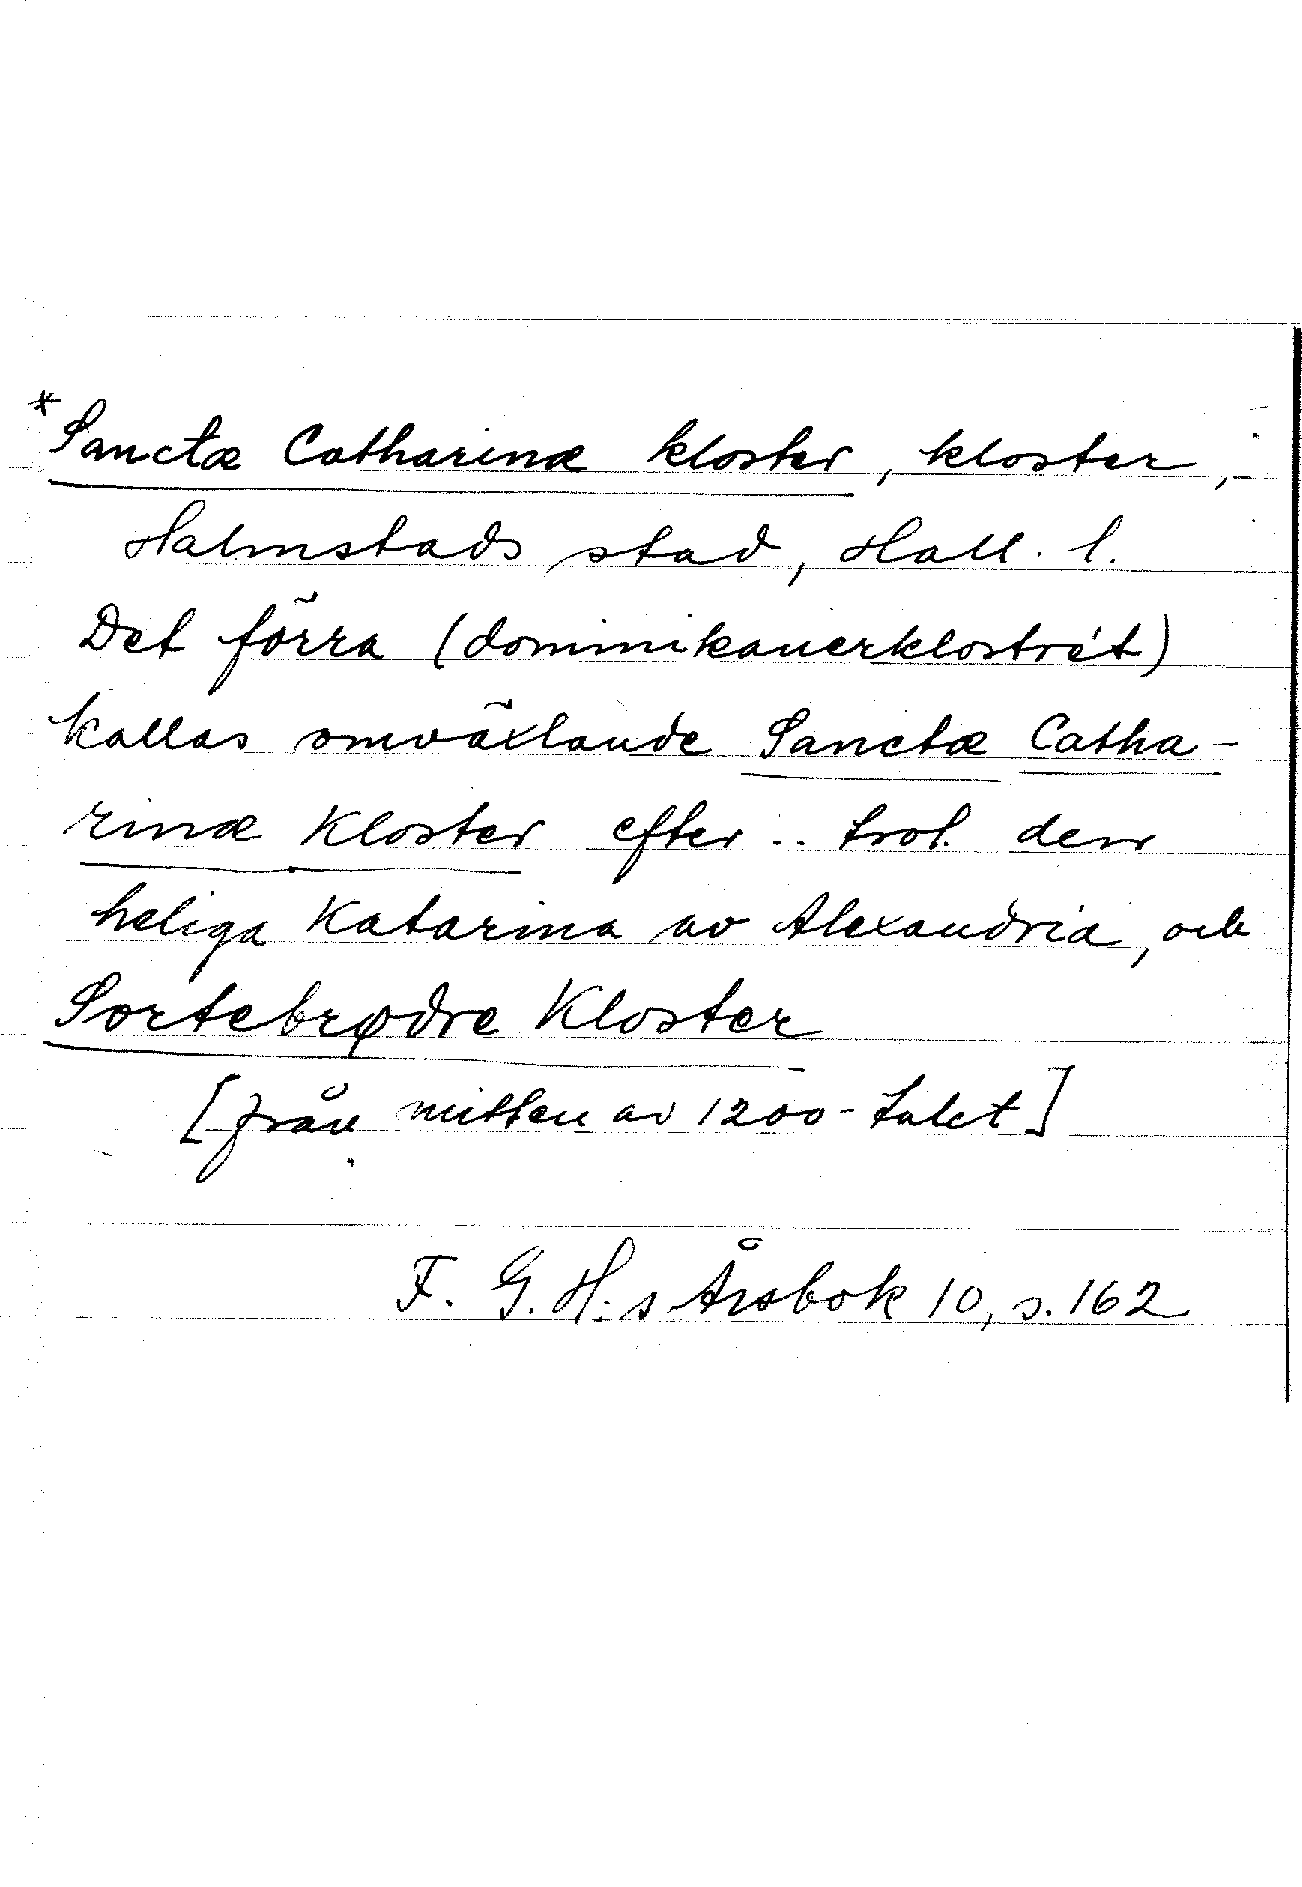 *Sanctæ Catharinæ kloster, kloster,
Halmstads stad, Hall. l.
Det förra (dominikanerklostret)
kallas omväxlande Sanctæ Catha-
rinæ Kloster efter .. trol. den
heliga Katarina av Alexandria, och
Sortebrødre Kloster
[från mitten av 1200-talet]
F. G. H.s Årsbok 10, s. 162